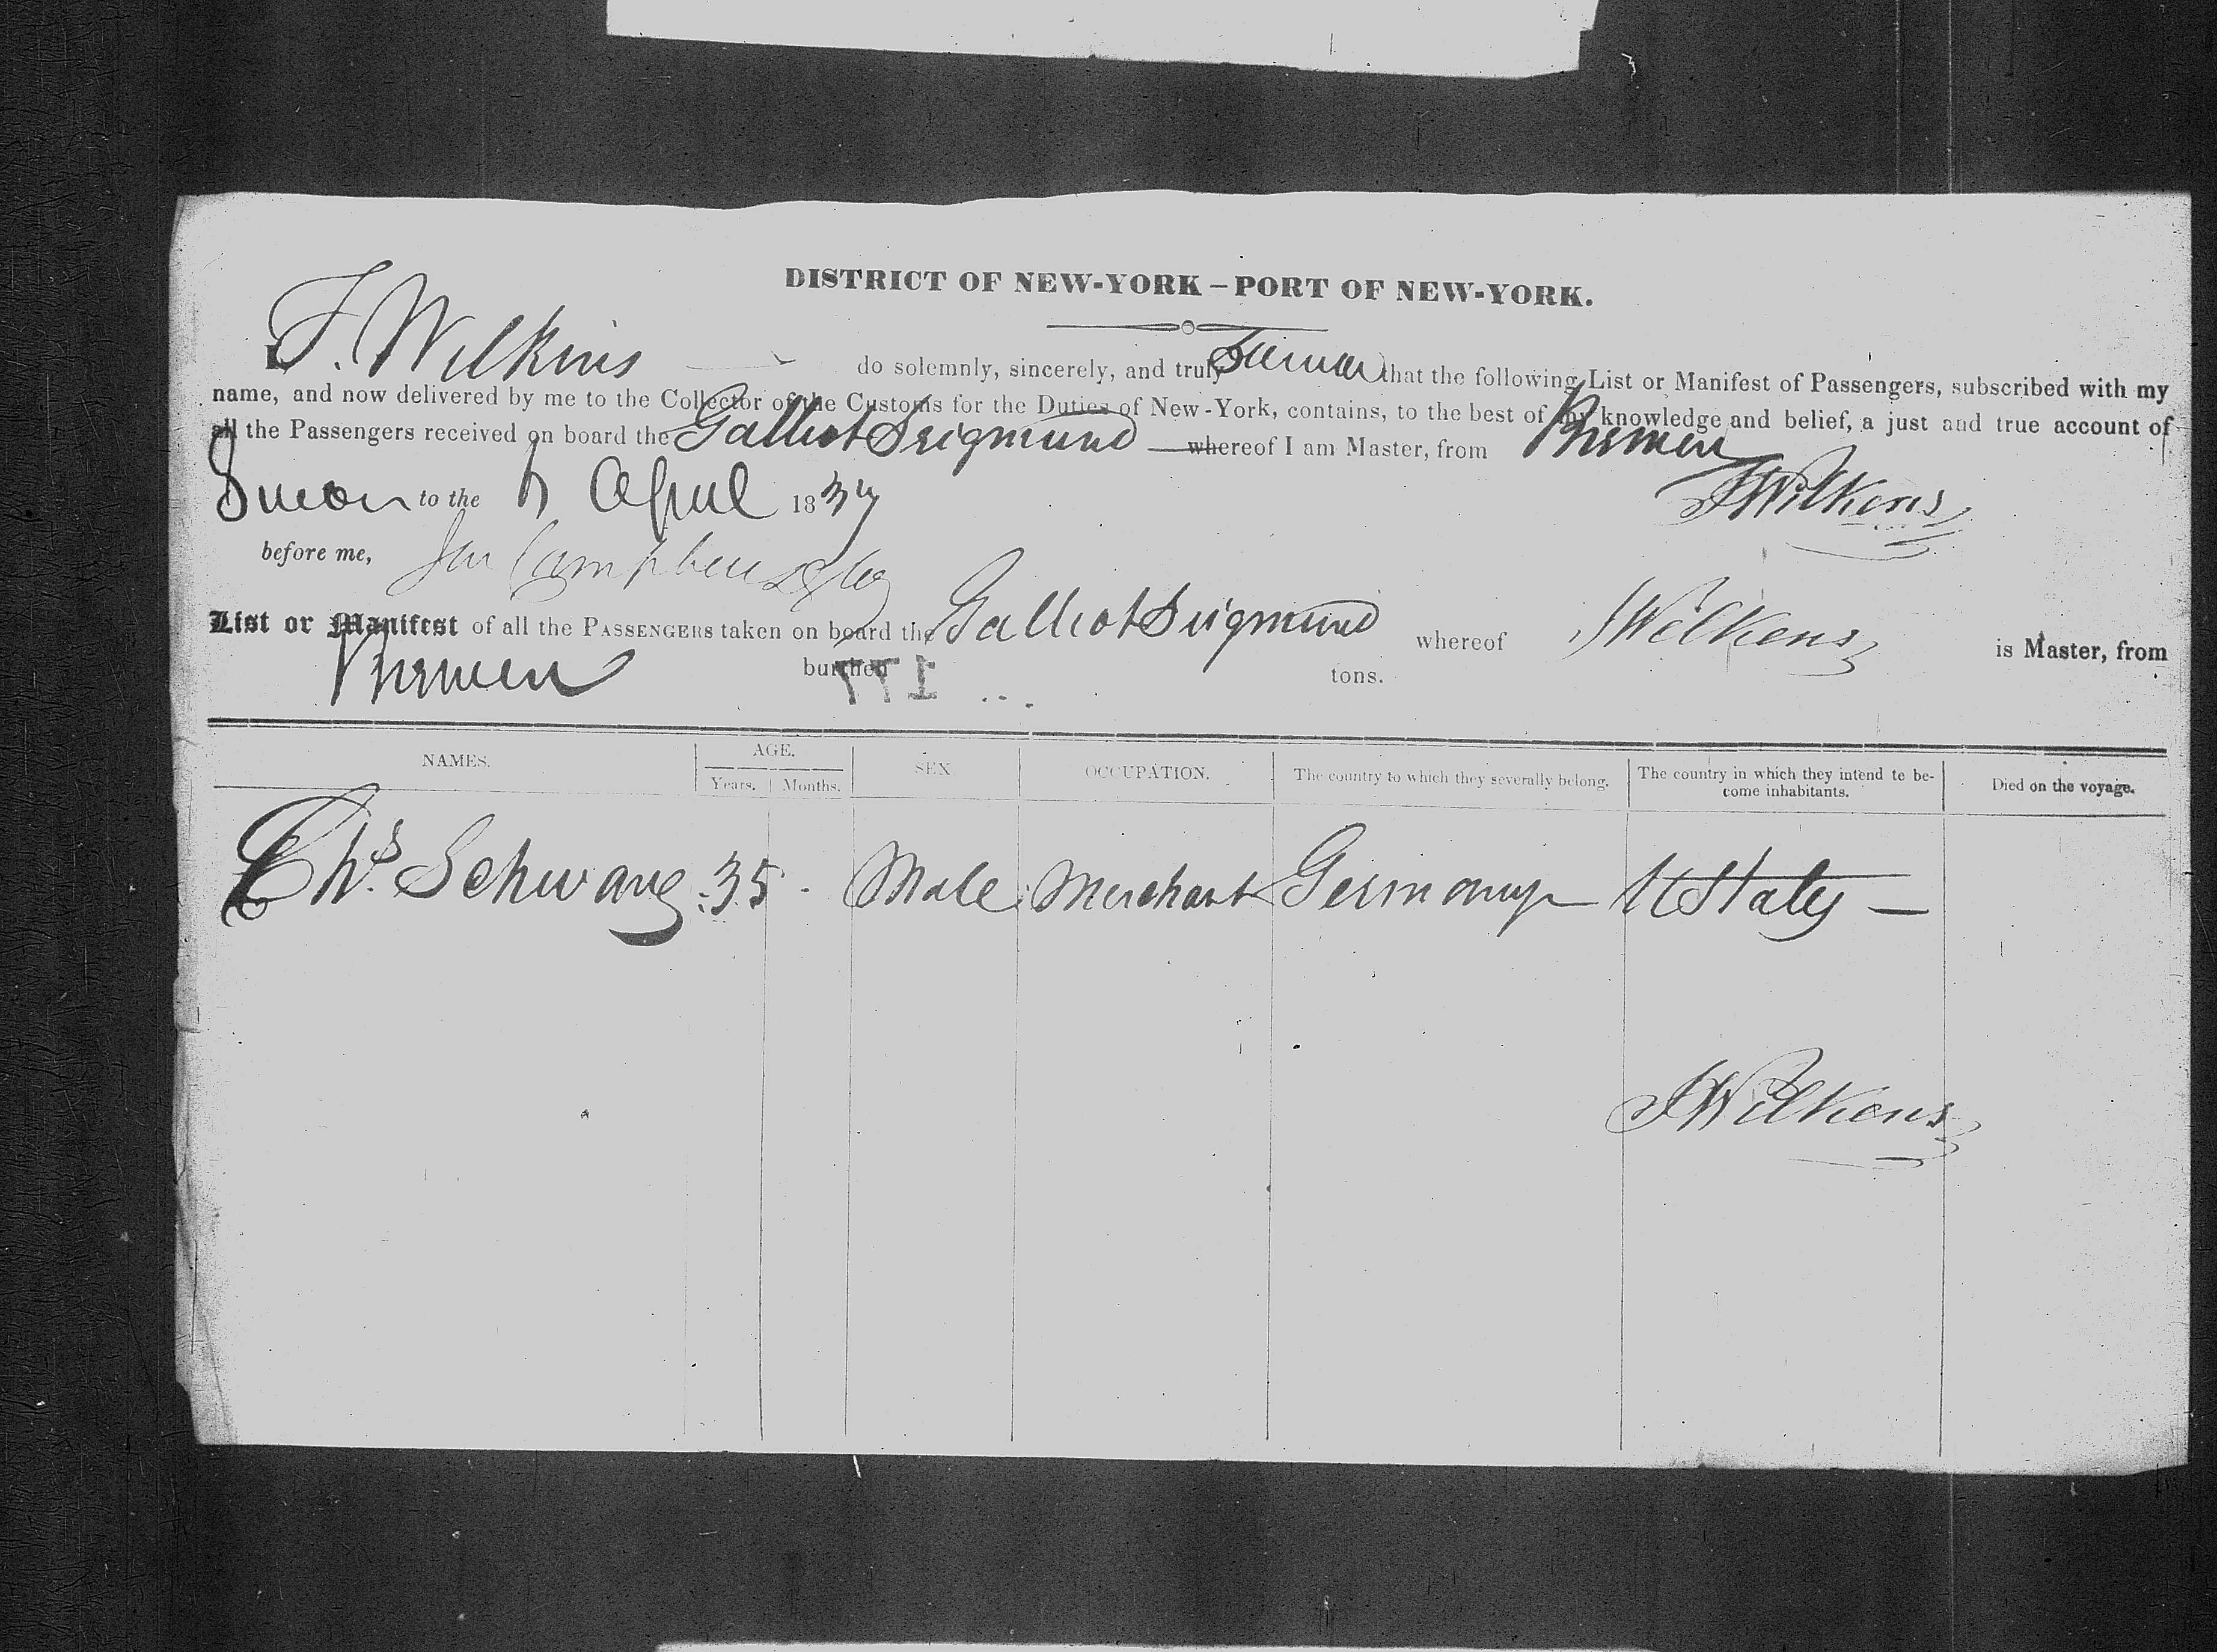 DISTRICT OF NEW-YORK – PORT OF NEW-YORK.
I, F. Wilkins do solemnly, sincerely, and truly Swear that the following List or Manifest of Passengers, subscribed with my
name, and now delivered by me to the Collector of the Customs for the Duties of New-York, contains, to the best of my knowledge and belief, a just and true account of
all the Passengers received on board the Galliot Siegmund whereof I am Master, from Bremen
Sworn to the 6 April 1837 FWilkens
before me,
List or Manifest of all the PASSENGERS taken on board the Galliot Siegmund whereof FWilkens is Master, from
Bremen burthen tons.
NAMES. AGE. SEX. OCCUPATION. The country to which they severally belong. The country in which they intend to be-
come inhabitants. Died on the voyage.
Years. Months.
Chs. Schwang 35 Male Merchant Germany U States
FWilkens